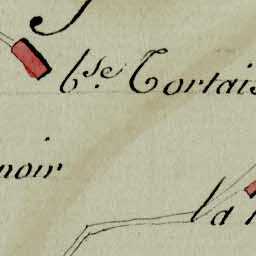 bse. Tortais
noir
la